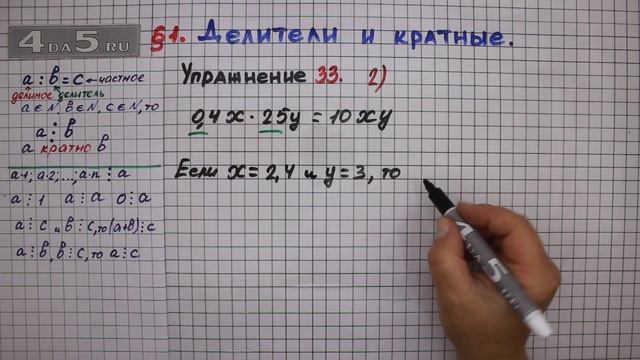 4DA5.RU
§1. Делители и кратные.
a : b = c ← частное
делимое делитель
a ∈ N, b ∈ N, c ∈ N, то
a ⋮ b
a кратно b
a·1; a·2; ...; a·n ⋮ a
a ⋮ 1 a ⋮ a 0 ⋮ a
a ⋮ c и b ⋮ c, то (a+b) ⋮ c
a ⋮ b, b ⋮ c, то a ⋮ c
Упражнение 33. 2)
0,4x · 25y = 10xy
Если x = 2,4 и y = 3, то